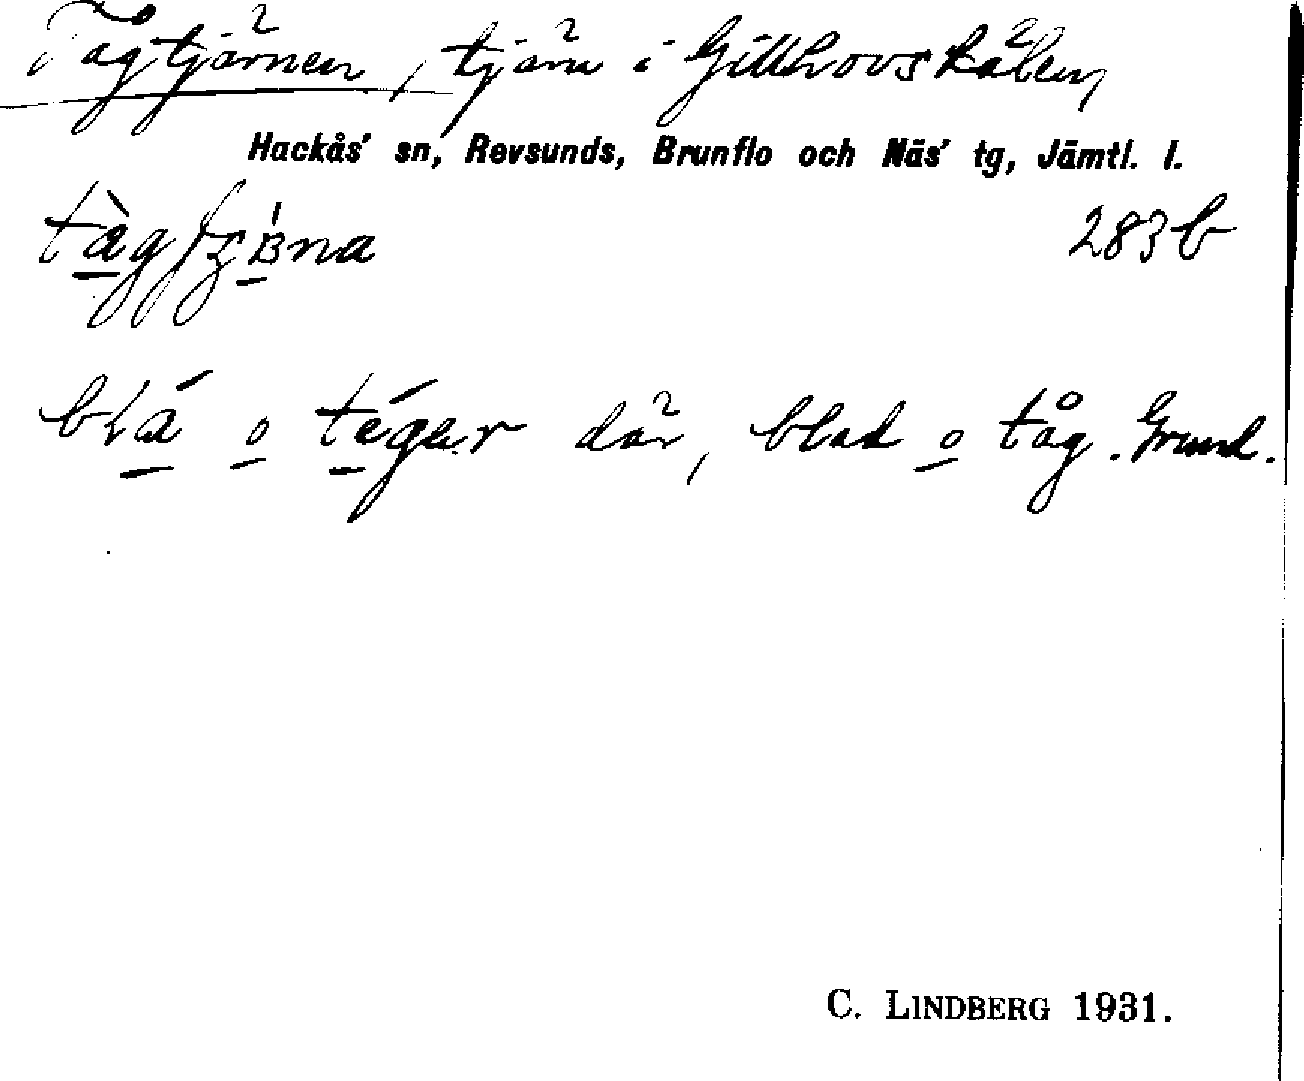 Tågtjärnen, tjärn i Gillhovskälen,
Hackås' sn, Revsunds, Brunflo och Näs' tg, Jämtl. l.
283b
blá o tégar där, blad o tåg. Grund.
C. LINDBERG 1931.